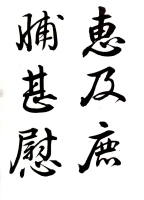 惠及庶
脯甚慰